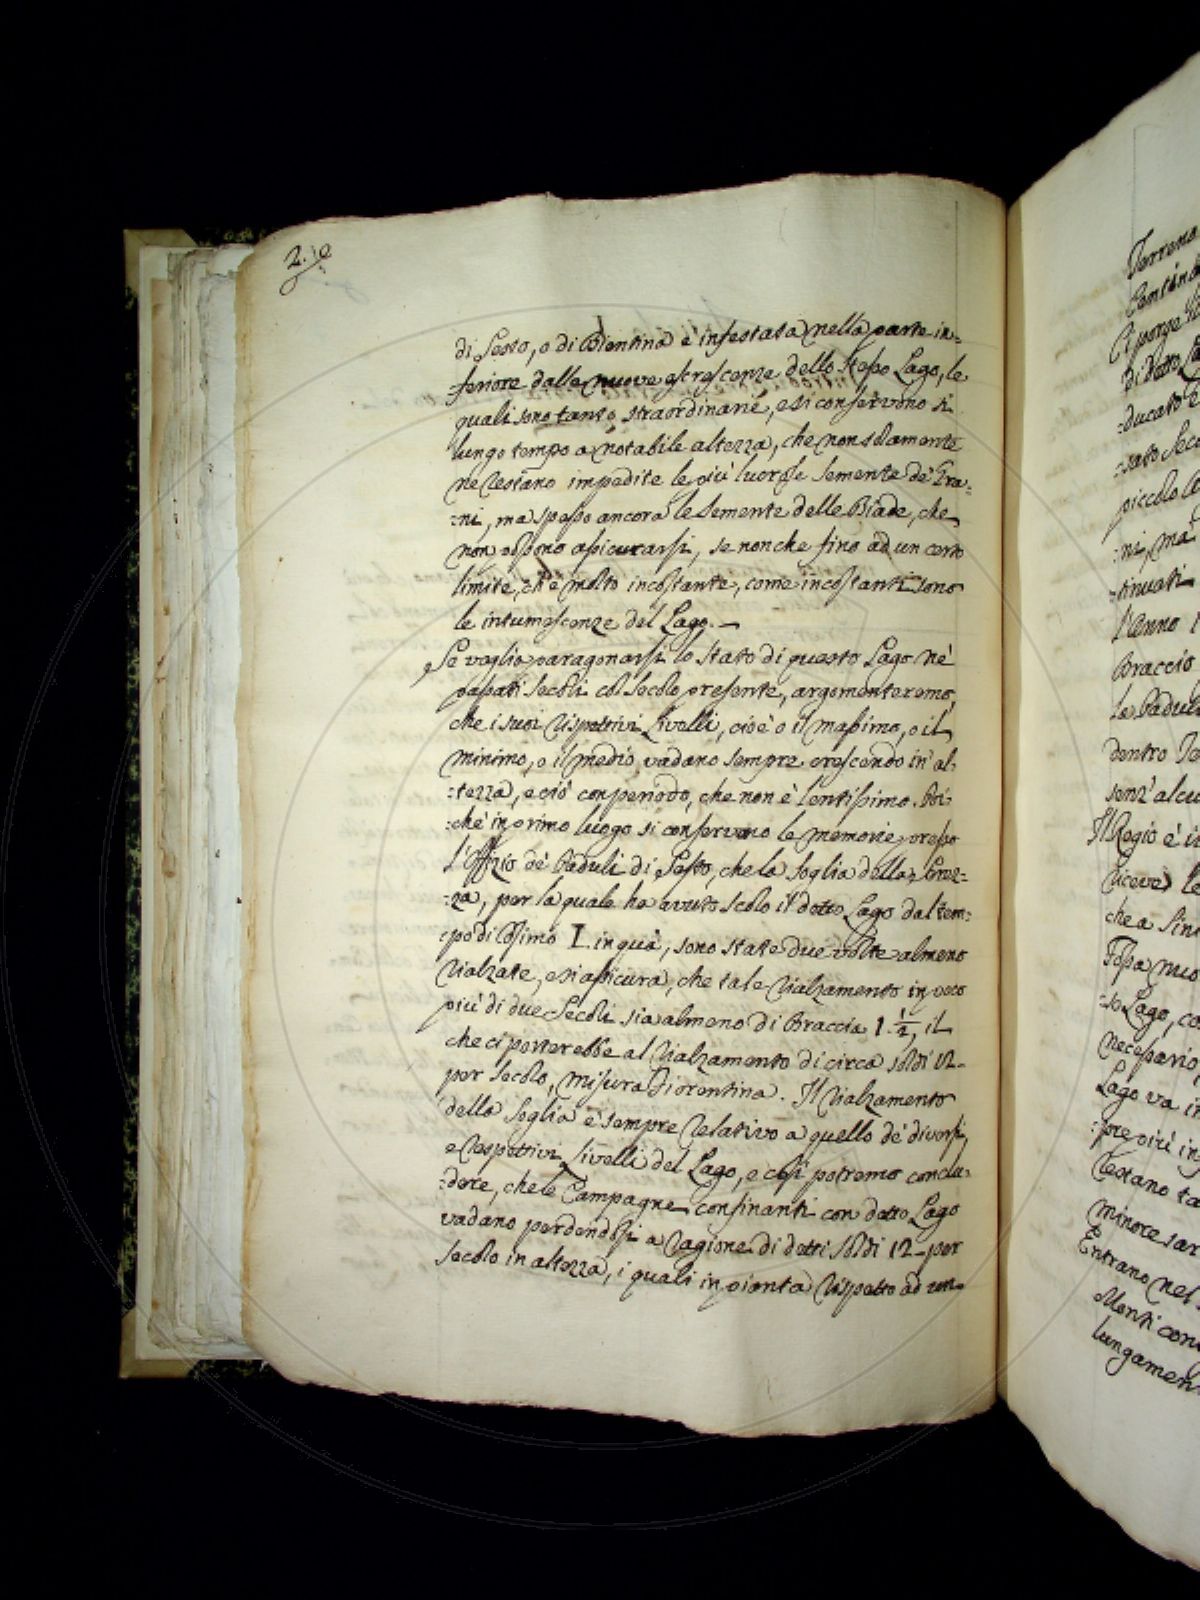 2.º
di Sesto, o di Bientina è infestata nella parte in-
:feriore dalle nuove escrescenze dello stesso Lago, le
quali sono tanto straordinarie, e si conservono sì
lungo tempo a notabile altezza, che non solamente
ne restano impedite le più lucrose semente de' Gra:
:ni, ma spesso ancora le semente delle Biade, che
non possono assicurarsi, se non che fino ad un certo
limite, ch'è molto incostante, come incostanti sono
le intumescenze del Lago. —
Se voglia paragonarsi lo stato di questo Lago né
passati secoli col secolo presente, argomenteremo,
che i suoi rispettivi Livelli, cioè o il massimo, o il
minimo, o il medio, vadano sempre crescendo in al-
:tezza, e ciò con periodo, che non è lentissimo. Poi:
:chè in primo luogo si conservano le memorie presso
l'Offizio de' Paduli di Sesto, che la soglia della Prez-
:za, per la quale ha avuto scolo il detto Lago dal tem:
:po di Cosimo I. in quà, sono state due volte almeno
rialzate, e si assicura, che tale rialzamento in poco
più di due Secoli sia almeno di Braccia 1. 1/2, il
che ci porterebbe al rialzamento di circa soldi 12-
per secolo, misura Fiorentina. Il rialzamento
della soglia è sempre relativo a quello de' diversi,
e respettivi Livelli del Lago, e così potremo conclu:
:dere, che le Campagne confinanti con detto Lago
vadano perdendosi a ragione di detti soldi 12- per
secolo in altezza, i quali in pianta rispetto ad un-
Terreno
di detto
:ducato
piccolo
:ni, mà
:tinuati
l'Anno 1
Braccio
le Padul
dentro
senz'alcu
Il Regio è i
riceve le
che a
Fossa nuo
:so Lago, co
necessario,
Lago va in
:pre più in
restano ta
minore sar
Entrano nel
Monti con
lungamen